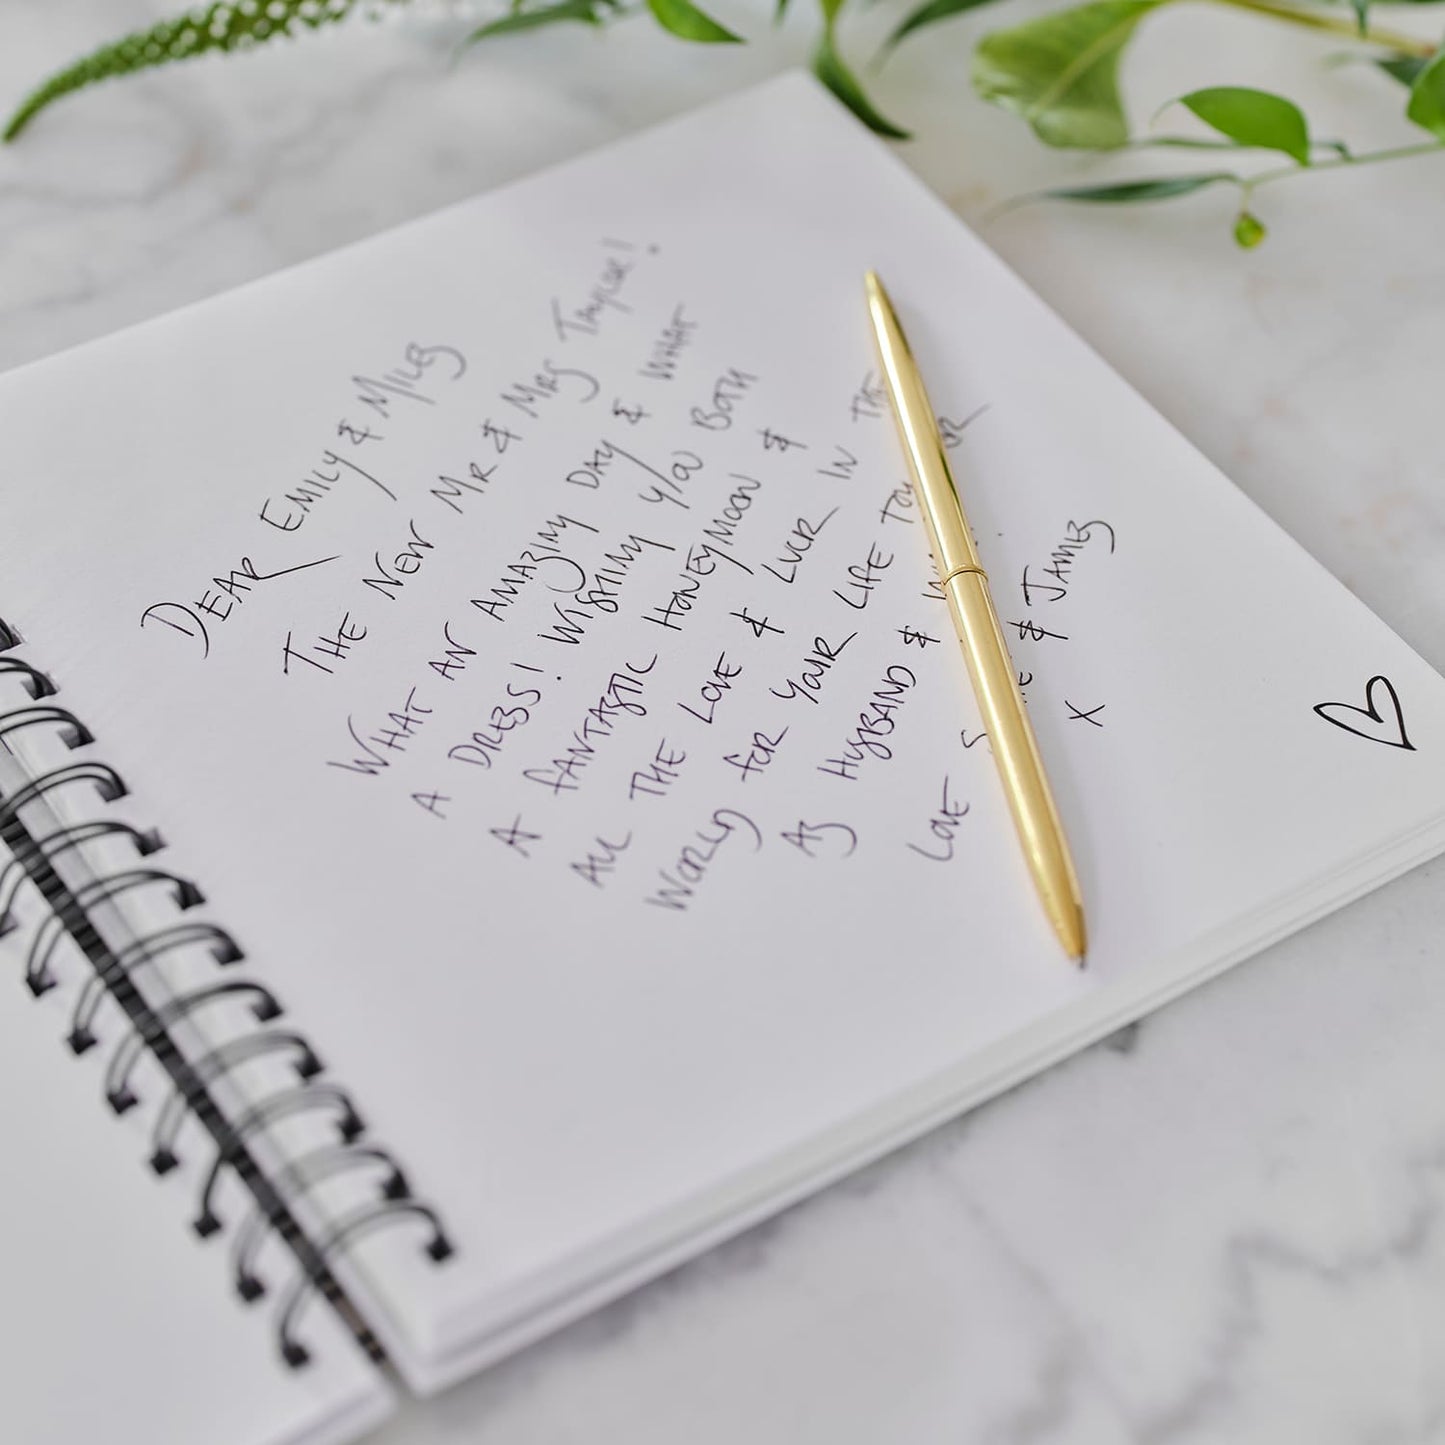 DEAR EMILY & MILES
THE NEW MR & MRS TAYLOR!
WHAT AN AMAZING DAY & WHAT
A DRESS! WISHING YOU BOTH
A FANTASTIC HONEYMOON &
ALL THE LOVE & LUCK IN THE
WORLD FOR YOUR LIFE
AS HUSBAND &
LOVE & JAMES
X